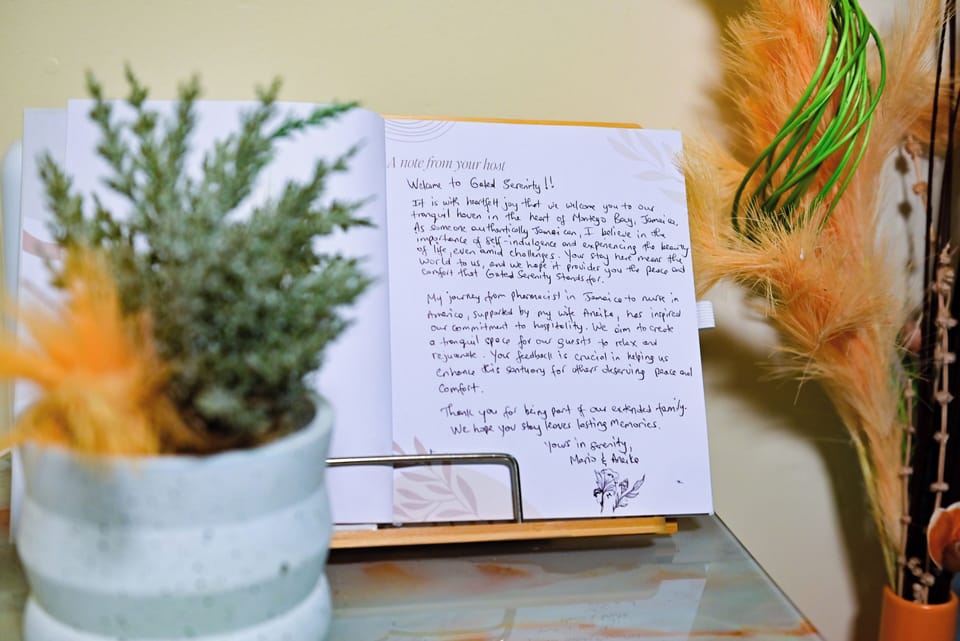 A note from your host
Welcome to Gated Serenity!!
It is with heartfelt joy that we welcome you to our
tranquil haven in the heart of Montego Bay, Jamaica.
As someone authentically Jamaican, I believe in the
importance of self-indulgence and experiencing the beauty
of life, even amid challenges. Your stay here means the
world to us, and we hope it provides you the peace and
comfort that Gated Serenity stands for.
My journey from Pharmacist in Jamaica to nurse in
America, supported by my wife Aneika, has inspired
our commitment to hospitality. We aim to create
a tranquil space for our guests to relax and
rejuvenate. Your feedback is crucial in helping us
enhance this santuary for others deserving peace and
comfort.
Thank you for being part of our extended family.
We hope you stay leaves lasting memories.
Yours in Serenity,
Mario & Aneika